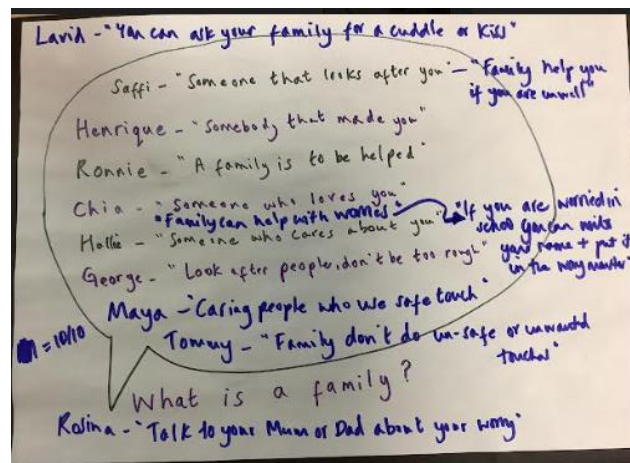 Lavid - "You can ask your family for a cuddle or kiss"
Saffi - "Someone that looks after you" - "Family help you if you are unwell"
Henrique - "Somebody that made you"
Ronnie - "A family is to be helped"
Chia - "Someone who loves you"
"Family can help with worries" "If you are worried in school you can write your name + put it in the worry monster"
Hollie - "Someone who cares about you"
George - "Look after people, don't be too rough"
Maya - "Caring people who use safe touch"
= 10/10
Tommy - "Family don't do un-safe or unwanted touches"
What is a family?
Rosina - "Talk to your Mum or Dad about your worry"